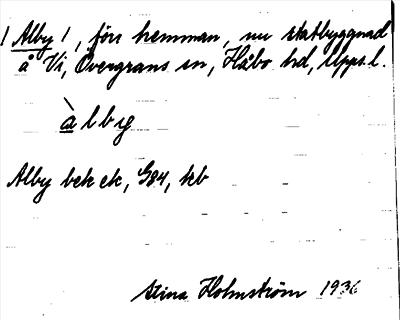 ! Alby !, förr hemman, nu statbyggnad
å Vi, Övergrans sn, Håbo hd, Upps. l.
àlby
Alby bek ek, G84, kb
Stina Holmström 1936